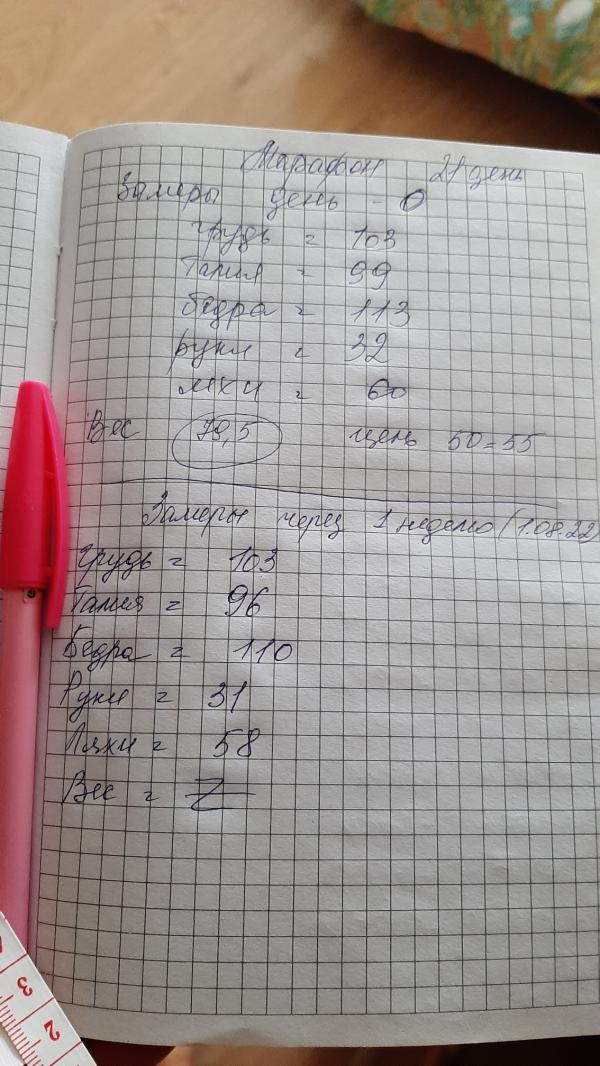 Марафон 21 день
Замеры день - 0
грудь = 103
Талия = 99
бедра = 113
руки = 32
ляхи = 60
Вес 79,5 цель 50-55
Замеры через 1 неделю (1.08.22)
Грудь = 103
Талия = 96
Бедра = 110
Руки = 31
Ляхи = 58
Вес =
3
2